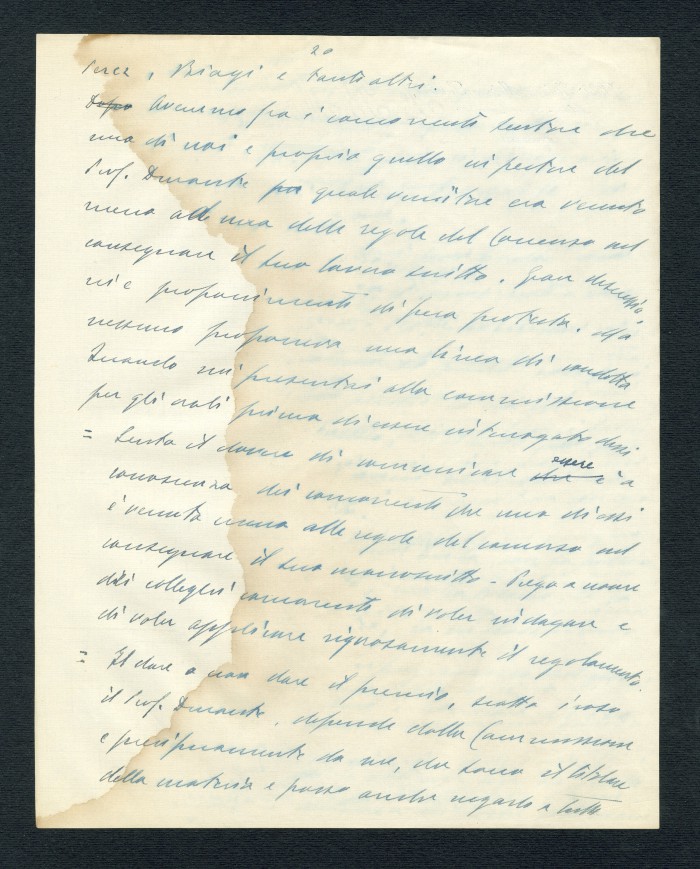 20
Perez, Biagi e tanti altri.
Dopo Avevamo fra i concorrenti sentore che
uno di noi e proprio quello ispettore del
Prof. Durante pel quale venitore era venuto
meno alle una delle regole del Concorso nel
consegnare il suo lavoro scritto. Gran discussio
ni e proponimenti di fiera protesta. Ma
nessuno proponeva una linea di condotta
Quando mi presentai alla commissione
per gli orali prima di essere interrogato dissi
= Sento il dovere di comunicare che essere è a
conoscenza dei concorrenti che uno di essi
è venuto meno alle regole del concorso nel
consegnare il suo manoscritto - Prego a nome
dei colleghi concorrenti di voler indagare e
di voler applicare rigorosamente il regolamento.
= Il dare o non dare il premio, scatta
il Prof. Durante, dipende dalla Commissione
e precipuamente da me, che sono il titolare
della materia e posso anche negarlo a tutti